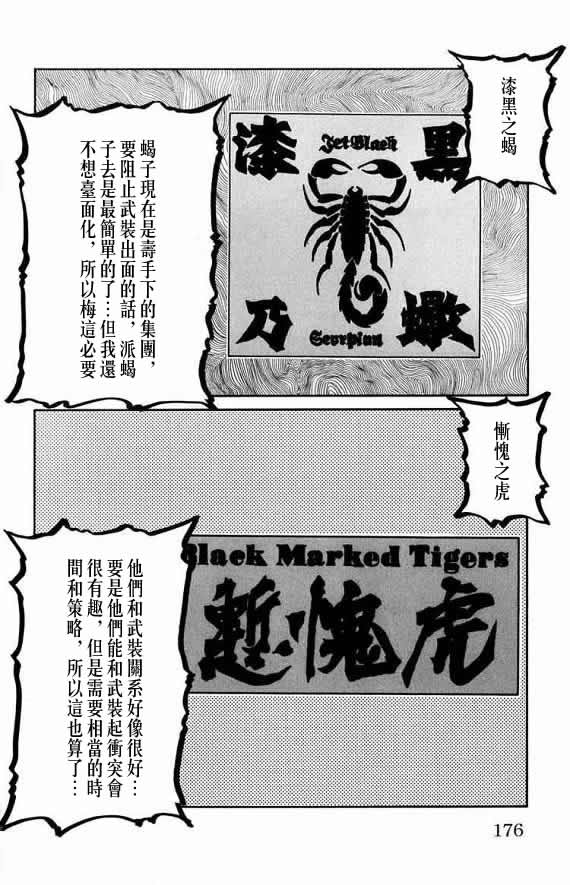 漆黑之蝎
漆 Jet Black 黒
乃 Scorpion 蠍
蝎子現在是壽手下的集團，
要阻止武裝出面的話，派蝎
子去是最簡單的了…但我還
不想臺面化，所以梅這必要
慚愧之虎
Black Marked Tigers
慙愧虎
他們和武裝關系好像很好…
要是他們能和武裝起衝突會
很有趣，但是需要相當的時
間和策略，所以這也算了…
176